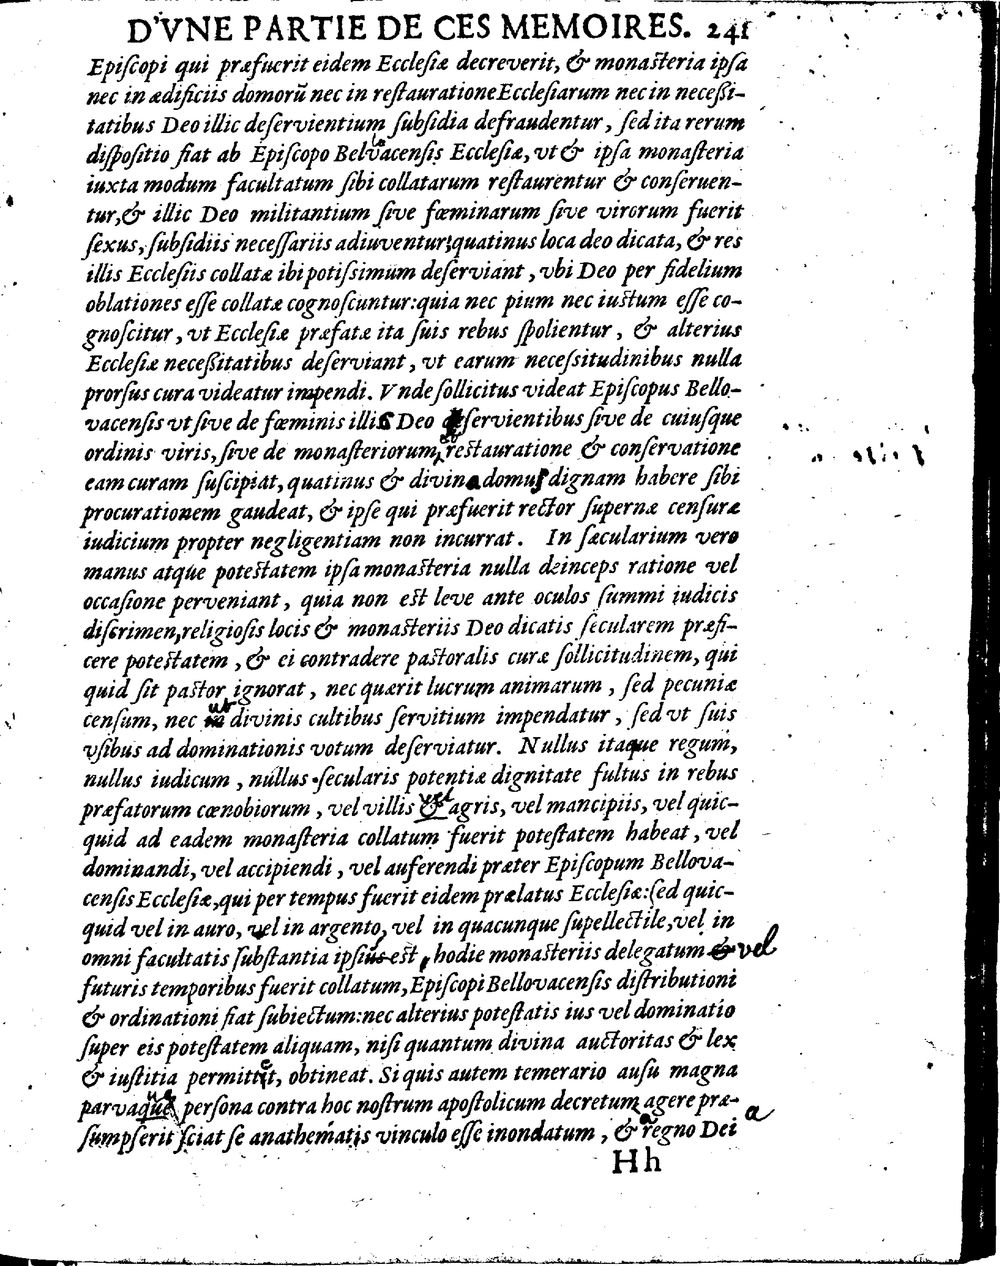 D'VNE PARTIE DE CES MEMOIRES. 241
Episcopi qui præfuerit eidem Ecclesiæ decreverit, & monasteria ipsa
nec in ædificiis domorũ nec in restauratione Ecclesiarum nec in necessi-
tatibus Deo illic deservientium subsidia defraudentur, sed ita rerum
dispositio fiat ab Episcopo Belvacensis Ecclesiæ, vt & ipsa monasteria
iuxta modum facultatum sibi collatarum restaurentur & conseruen-
tur, & illic Deo militantium sive fœminarum sive virorum fuerit
sexus, subsidiis necessariis adiuventur: quatinus loca deo dicata, & res
illis Ecclesiis collatæ ibi potissimum deserviant, vbi Deo per fidelium
oblationes esse collatæ cognoscuntur: quia nec pium nec iustum esse co-
gnoscitur, vt Ecclesiæ præfatæ ita suis rebus spolientur, & alterius
Ecclesiæ necessitatibus deserviant, vt earum necessitudinibus nulla
prorsus cura videatur impendi. Vnde sollicitus videat Episcopus Bello-
vacensis vt sive de fœminis illic Deo deservientibus sive de cuiusque
ordinis viris, sive de monasteriorum restauratione & conservatione
eam curam suscipiat, quatinus & divina domus dignam habere sibi
procurationem gaudeat, & ipse qui præfuerit rector supernæ censuræ
iudicium propter negligentiam non incurrat. In sæcularium vero
manus atque potestatem ipsa monasteria nulla deinceps ratione vel
occasione perveniant, quia non est leve ante oculos summi iudicis
discrimen, religiosis locis & monasteriis Deo dicatis secularem præfi-
cere potestatem, & ei contradere pastoralis curæ sollicitudinem, qui
quid sit pastor ignorat, nec quærit lucrum animarum, sed pecuniæ
censum, nec ut divinis cultibus servitium impendatur, sed vt suis
vsibus ad dominationis votum deserviatur. Nullus itaque regum,
nullus iudicum, nullus secularis potentiæ dignitate fultus in rebus
præfatorum cœnobiorum, vel villis & vel agris, vel mancipiis, vel quic-
quid ad eadem monasteria collatum fuerit potestatem habeat, vel
dominandi, vel accipiendi, vel auferendi præter Episcopum Bellova-
censis Ecclesiæ, qui per tempus fuerit eidem prælatus Ecclesiæ: sed quic-
quid vel in auro, vel in argento, vel in quacunque supellectile, vel in
omni facultatis substantia ipsius est, hodie monasteriis delegatum & vel
futuris temporibus fuerit collatum, Episcopi Bellovacensis distributioni
& ordinationi fiat subiectum: nec alterius potestatis ius vel dominatio
super eis potestatem aliquam, nisi quantum divina auctoritas & lex
& iustitia permittit, obtineat. Si quis autem temerario ausu magna
parvaque persona contra hoc nostrum apostolicum decretum agere præ-
sumpserit sciat se anathematis vinculo esse inondatum, & a regno Dei a
Hh